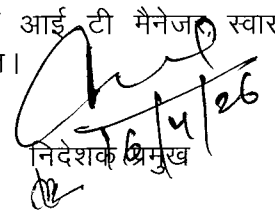 आई टी मैनेजर, स्वास
।
16/4/26
निदेशक प्रमुख